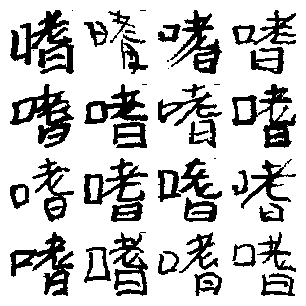 嗜嗜嗜嗜
嗜嗜嗜嗜
嗜嗜嗜嗜
嗜嗜嗜嗜